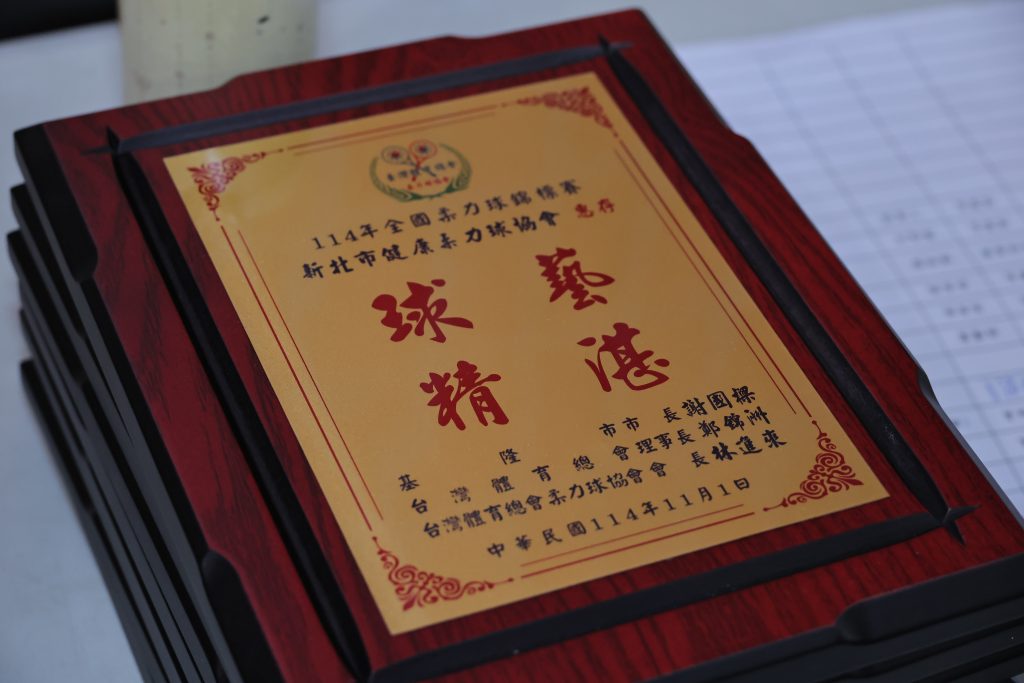 114年全國柔力球錦標賽
新北市健康柔力球協會 惠存
球藝
精湛
基隆市市長謝國樑
台灣體育總會理事長鄭錦洲
台灣體育總會柔力球協會會長林進來
中華民國114年11月1日